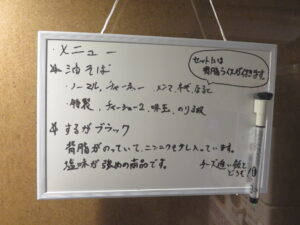 ・メニュー
油そば
・ノーマル、チャーシュー メンマ、ネギ、なると
・特製、チャーシュー2、味玉、のり3枚
するがブラック
背脂がのっていて、ニンニクも少し入っています。
塩味が強めの商品です。
セットには
背脂ライスが付きます。
チーズ追い飯も
どうぞ!!